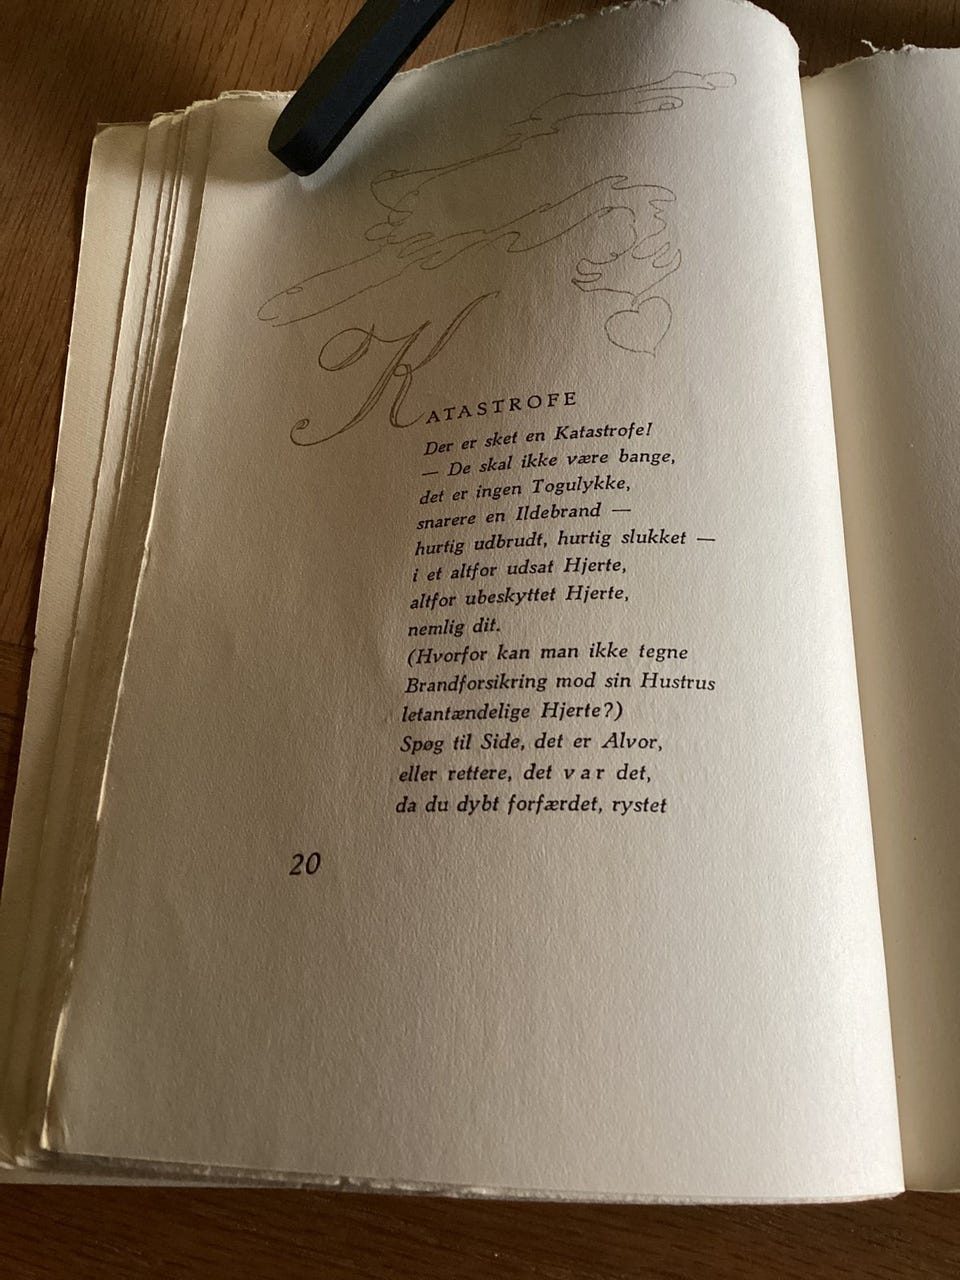 KATASTROFE
Der er sket en Katastrofe!
— De skal ikke være bange,
det er ingen Togulykke,
snarere en Ildebrand —
hurtig udbrudt, hurtig slukket —
i et altfor udsat Hjerte,
altfor ubeskyttet Hjerte,
nemlig dit.
(Hvorfor kan man ikke tegne
Brandforsikring mod sin Hustrus
letantændelige Hjerte?)
Spøg til Side, det er Alvor,
eller rettere, det var det,
da du dybt forfærdet, rystet
20